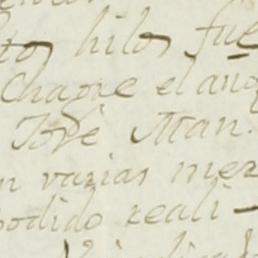 tos hilos fue
Chagre el año
José Man.
n varias mer
podido reali